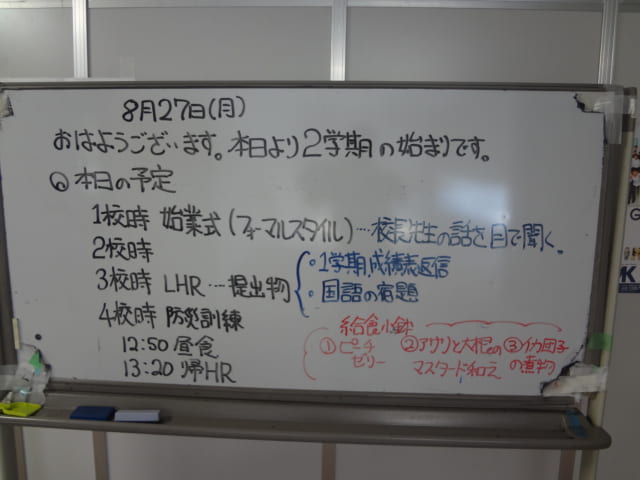 8月27日(月)
おはようございます。本日より2学期の始まりです。
◎本日の予定
1校時 始業式(フォーマルスタイル)…校長先生の話を目で聞く。
2校時
3校時 LHR…提出物
・1学期成績表返信
・国語の宿題
4校時 防災訓練
12:50 昼食
13:20 帰HR
給食小鉢
①ピーチゼリー
②アサリと大根のマスタード和え
③イカ団子の煮物